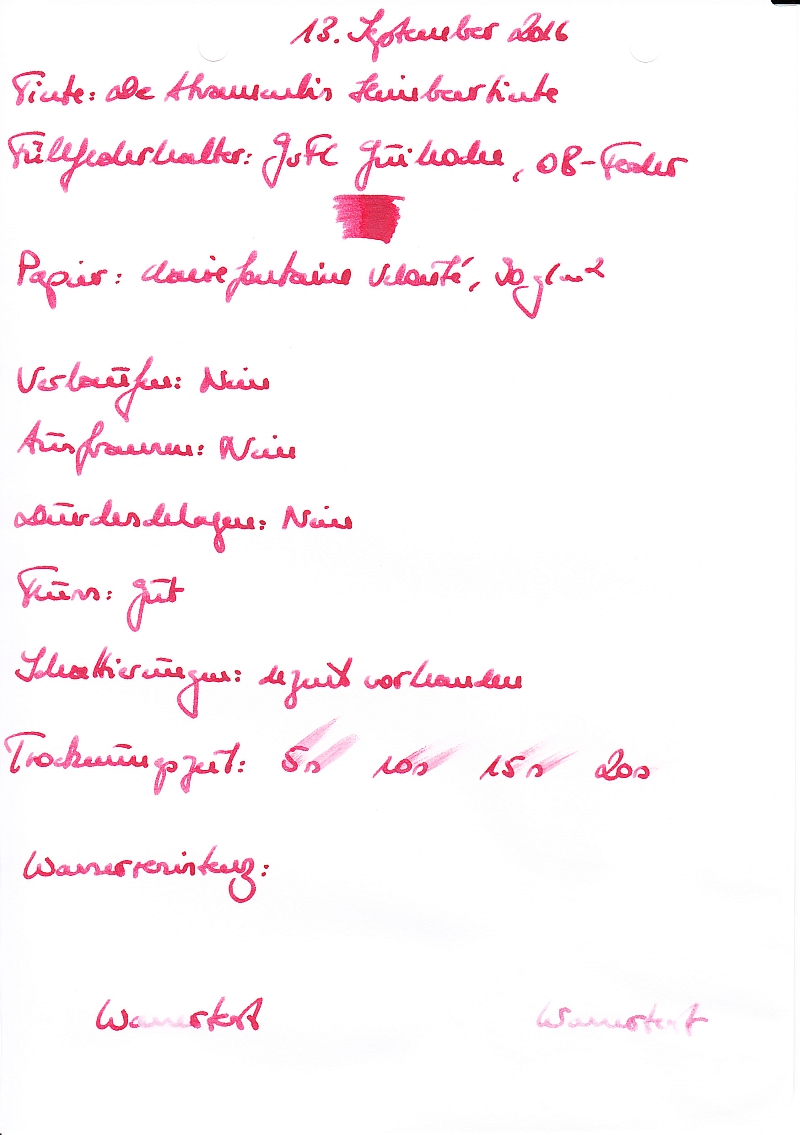 13. September 2016
Tinte: De Atramentis Himbeertinte
Füllfederhalter: GvFC Guilloche, OB-Feder
Papier: Clairefontaine Velouté, 90 g/m²
Verlaufen: Nein
Ausfransen: Nein
Durchschlagen: Nein
Fluss: gut
Schattierungen: dezent vorhanden
Trocknungszeit: 5s 10s 15s 20s
Wasserresistenz:
Wassertest Wassertest